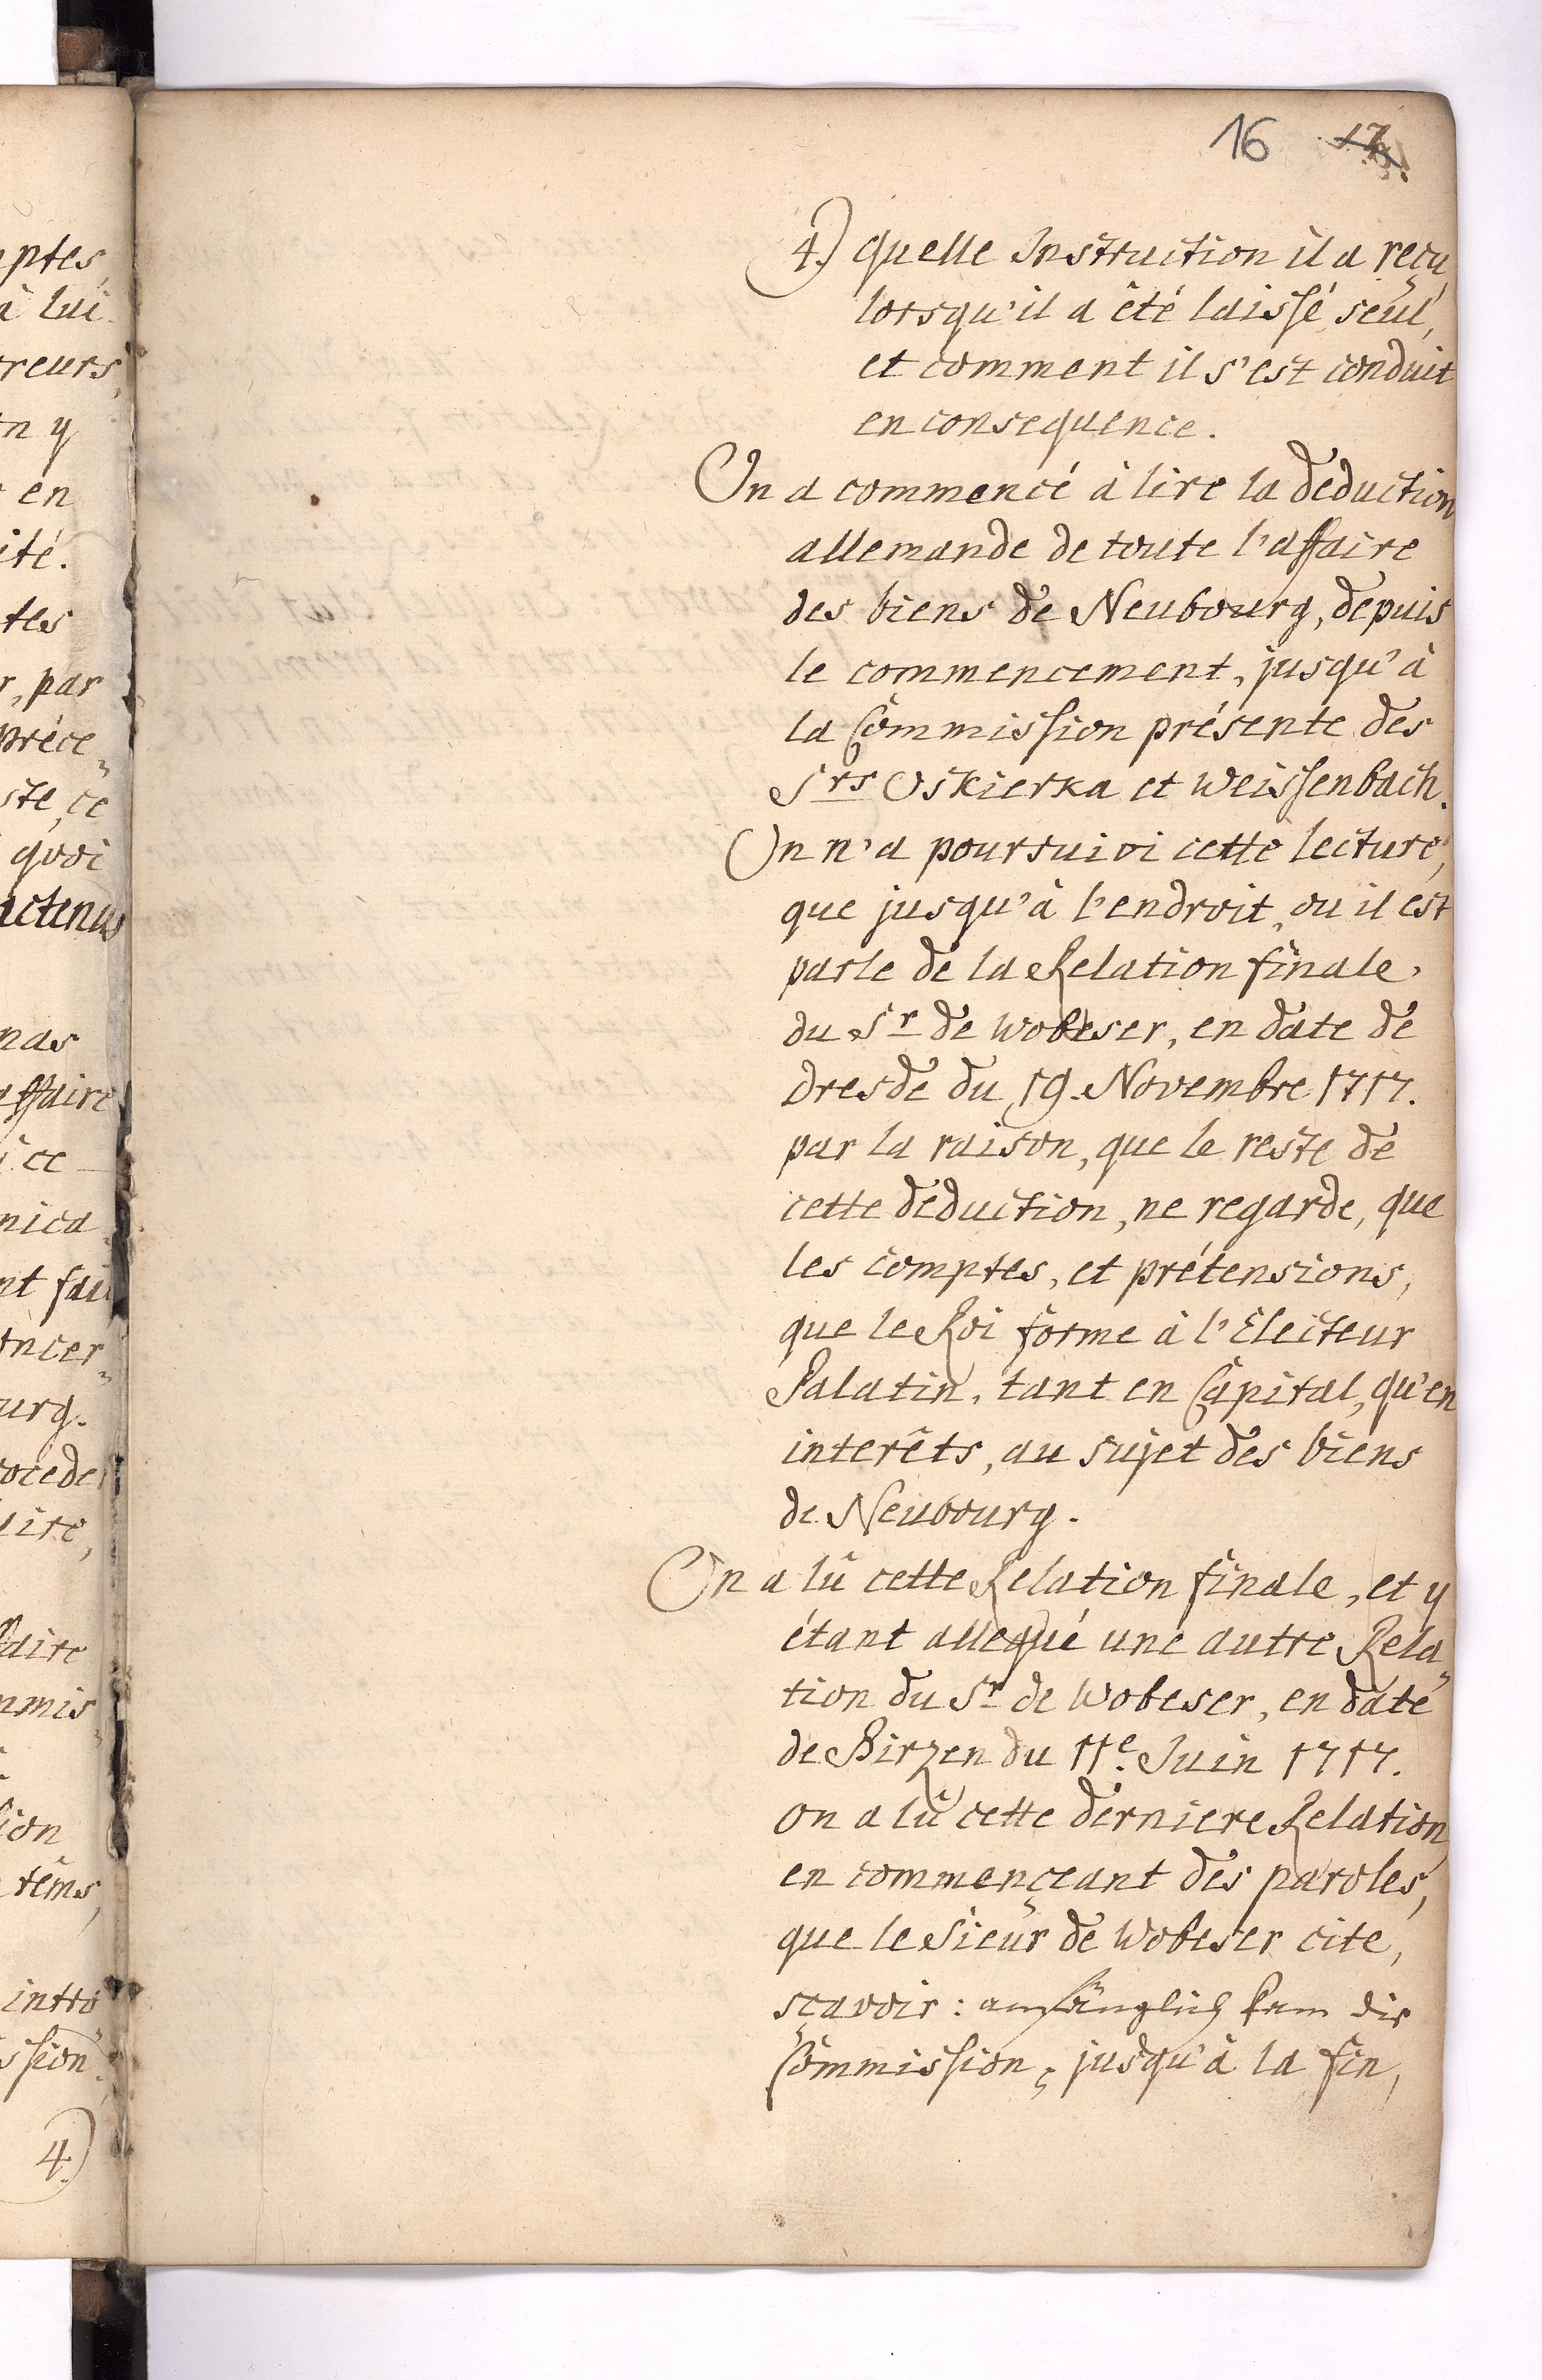 16 17.
4.) quelle Instruction il a reçu
lorsqu'il a êté laissé seul,
et comment il s'est conduit
en consequence.
On a commencé à lire la déduction
allemande de toute l'affaire
des biens de Neubourg, depuis
le commencement, jusqu'à
la Commission présente des
Srs Oskierka et Weissenbach.
On n'a poursuivi cette lecture,
que jusqu'à l'endroit, ou il est
parle de la Relation finale,
du Sr de Wobeser, en date de
Dresde du 19. Novembre 1717.
par la raison, que le reste de
cette déduction, ne regarde, que
les comptes, et prétensions,
que le Roi forme à l'Electeur
Palatin, tant en Capital, qu'en
interêts, au sujet des biens
de Neubourg.
On a lû cette Relation finale, et y
étant allegué une autre Rela„
tion du Sr de Wobeser, en date
de Birzen du 11e. Juin 1717.
on a lû cette derniere Relation,
en commençeant des paroles,
que le Sieur de Wobeser cite,
sçavoir: anfänglich kam die
Commission, jusqu'à la fin,
ptes,
à lui
reurs,
n y
en
ité.
tes
r, par
préce„
ste, ce
quoi
actenus
nas
affaire
ce
nica„
nt fait
oncer„
urg.
ocede
ire,
aire
mmis„
ion
têms,
intro„
ssion.
4.)